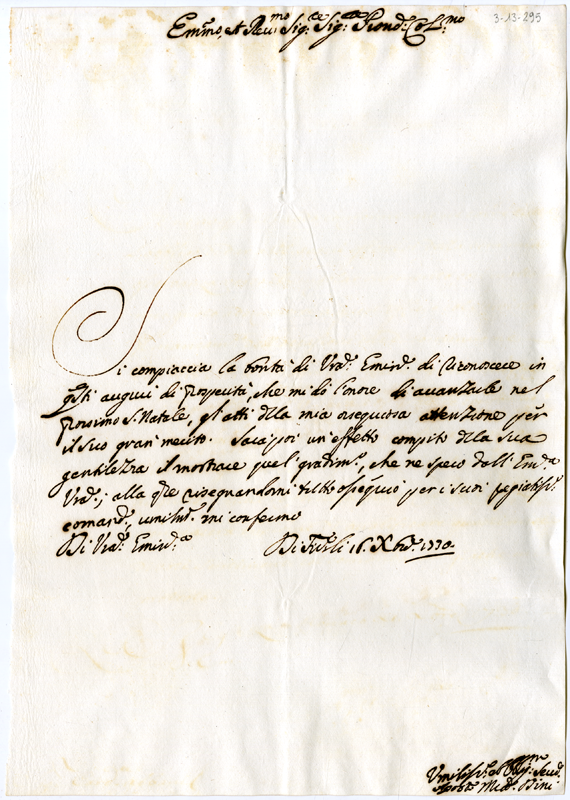 3-13-295
Emmo, et Revmo Sig:re Sig:re Pron: Colmo
Si compiaccia la bontà di Vra: Emin: di riconoscere in
qsti augurj di prosperità, che mi dò l'onore di avanzarle nel
prossimo S. Natale, gl'atti della mia ossequiosa attenzione per
il suo gran merito. Sarà poi un'effetto compito della sua
gentilezza il mostrare quel gradim:, che ne spero dall'Emza
Vra:; alla qle risegnandomi tutto ossequio per i suoi pregiatiss:
comand:, umilm: mi confermo
Di Vra: Emin:za Di Furlì 16. Xbre: 1730.
Umiliss: ed Obligmo Serud.
Agosto Bini